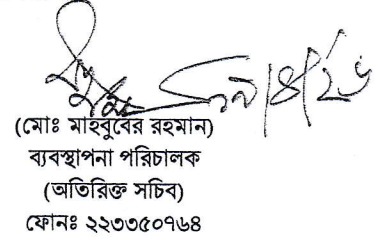 (মোঃ মাহবুবের রহমান)
ব্যবস্থাপনা পরিচালক
(অতিরিক্ত সচিব)
ফোনঃ ২২৩৩৫০৭৬৪